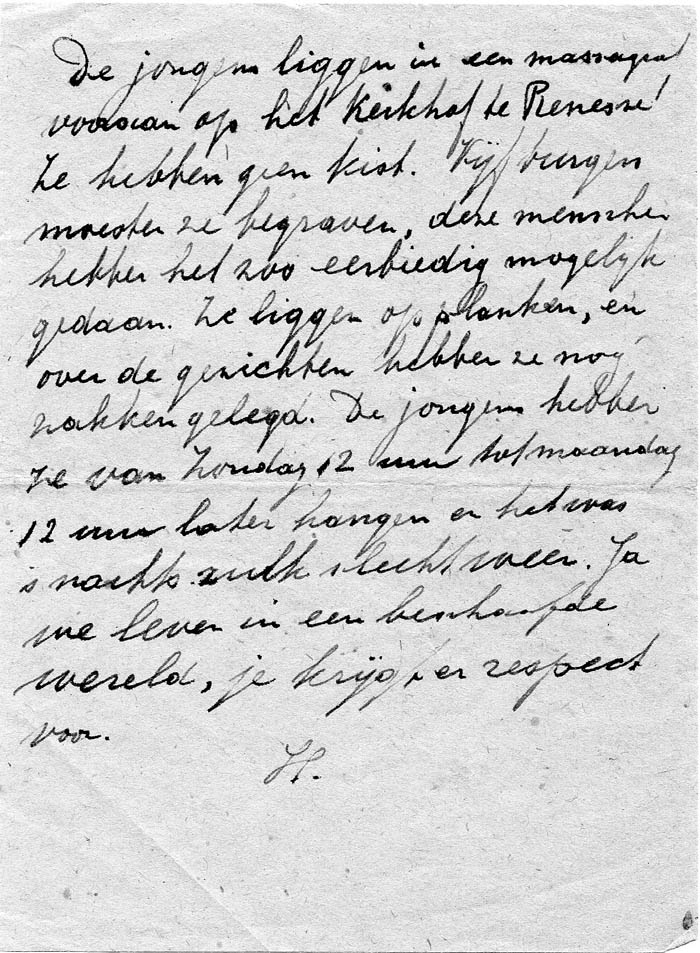 De jongens liggen in een massagraf
vooraan op het Kerkhof te Renesse!
Ze hebben geen kist. Vijf burgers
moesten ze begraven, deze menschen
hebben het zoo eerbiedig mogelijk
gedaan. Ze liggen op planken, en
over de gezichten hebben ze nog
zakken gelegd. De jongens hebben
ze van Zondag 12 uur tot maandag
12 uur laten hangen en het was
s'nachts zulk slecht weer. Ja
we leven in een beschaafde
wereld, je krijgt er respect
voor.
H.